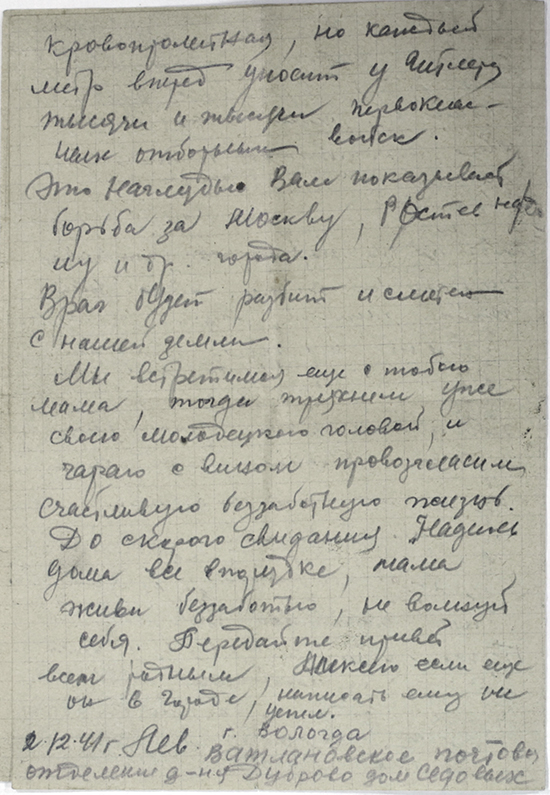 кровопролитная, но каждый
метр вперед уносит у Гитлера
тысячи и тысячи первоклас-
ных отборных войск.
Это наглядно Вам показывает
борьба за Москву, Ростов на До
ну и др. города.
Враг будет разбит и сметен
с нашей земли.
Мы встретимся еще с тобою
мама, тогда тряхнем уже
своею молодецкого головой, и
чараю с вином провозгласим
счастливую беззаботную жизнь.
До скорого свидания. Надеюсь
дома все в порядке, мама
живи беззаботно, не волнуй
себя. Передайте привет
всем родным, Алексею если еще
он в городе, написать ему не
успел.
2.12.41 г Лев. г. Вологда
Ватлановское почтовое
отделение д-ня Дуброво дом Седовых